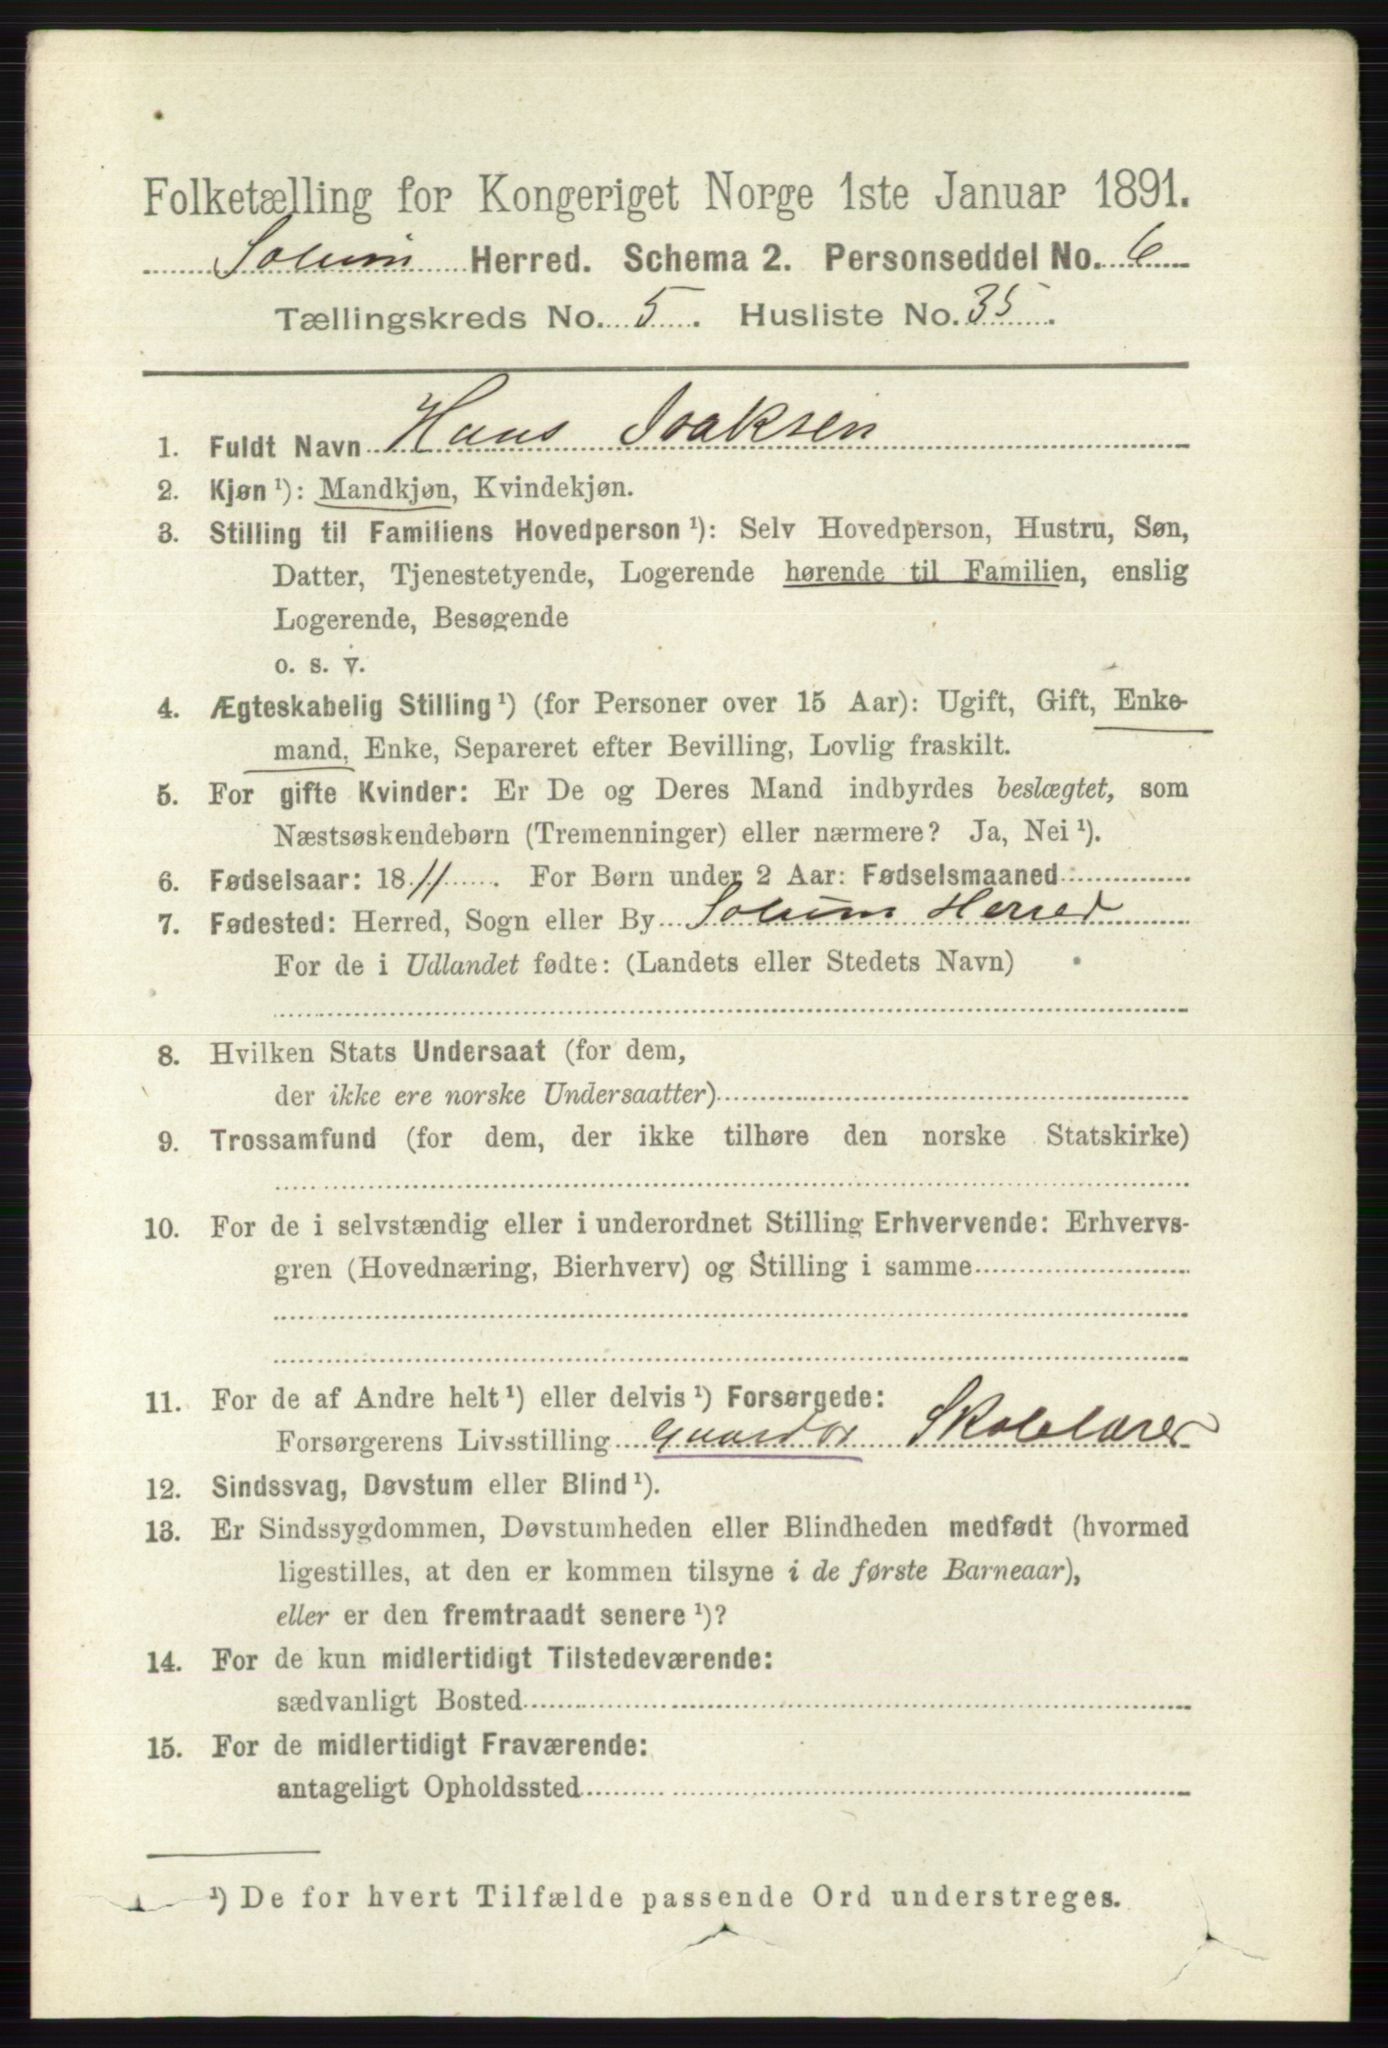 Folketælling for Kongeriget Norge 1ste Januar 1891.
Solum Herred. Schema 2. Personseddel No. 6
Tællingskreds No. 5. Husliste No. 35.
1. Fuldt Navn Hans Isaksen
2. Kjøn ¹): Mandkjøn, Kvindekjøn.
3. Stilling til Familiens Hovedperson ¹): Selv Hovedperson, Hustru, Søn,
Datter, Tjenestetyende, Logerende hørende til Familien, enslig
Logerende, Besøgende
o. s. v.
4. Ægteskabelig Stilling ¹) (for Personer over 15 Aar): Ugift, Gift, Enke-
mand, Enke, Separeret efter Bevilling, Lovlig fraskilt.
5. For gifte Kvinder: Er De og Deres Mand indbyrdes beslægtet, som
Næstsøskendebørn (Tremenninger) eller nærmere? Ja, Nei ¹).
6. Fødselsaar: 1811. For Børn under 2 Aar: Fødselsmaaned
7. Fødested: Herred, Sogn eller By Solum Herred
For de i Udlandet fødte: (Landets eller Stedets Navn)
8. Hvilken Stats Undersaat (for dem,
der ikke ere norske Undersaatter)
9. Trossamfund (for dem, der ikke tilhøre den norske Statskirke)
10. For de i selvstændig eller i underordnet Stilling Erhvervende: Erhvervs-
gren (Hovednæring, Bierhverv) og Stilling i samme
11. For de af Andre helt ¹) eller delvis ¹) Forsørgede:
Forsørgerens Livsstilling Skolelærer
12. Sindssvag, Døvstum eller Blind ¹).
13. Er Sindssygdommen, Døvstumheden eller Blindheden medfødt (hvormed
ligestilles, at den er kommen tilsyne i de første Barneaar),
eller er den fremtraadt senere ¹)?
14. For de kun midlertidigt Tilstedeværende:
sædvanligt Bosted
15. For de midlertidigt Fraværende:
antageligt Opholdssted
¹) De for hvert Tilfælde passende Ord understreges.